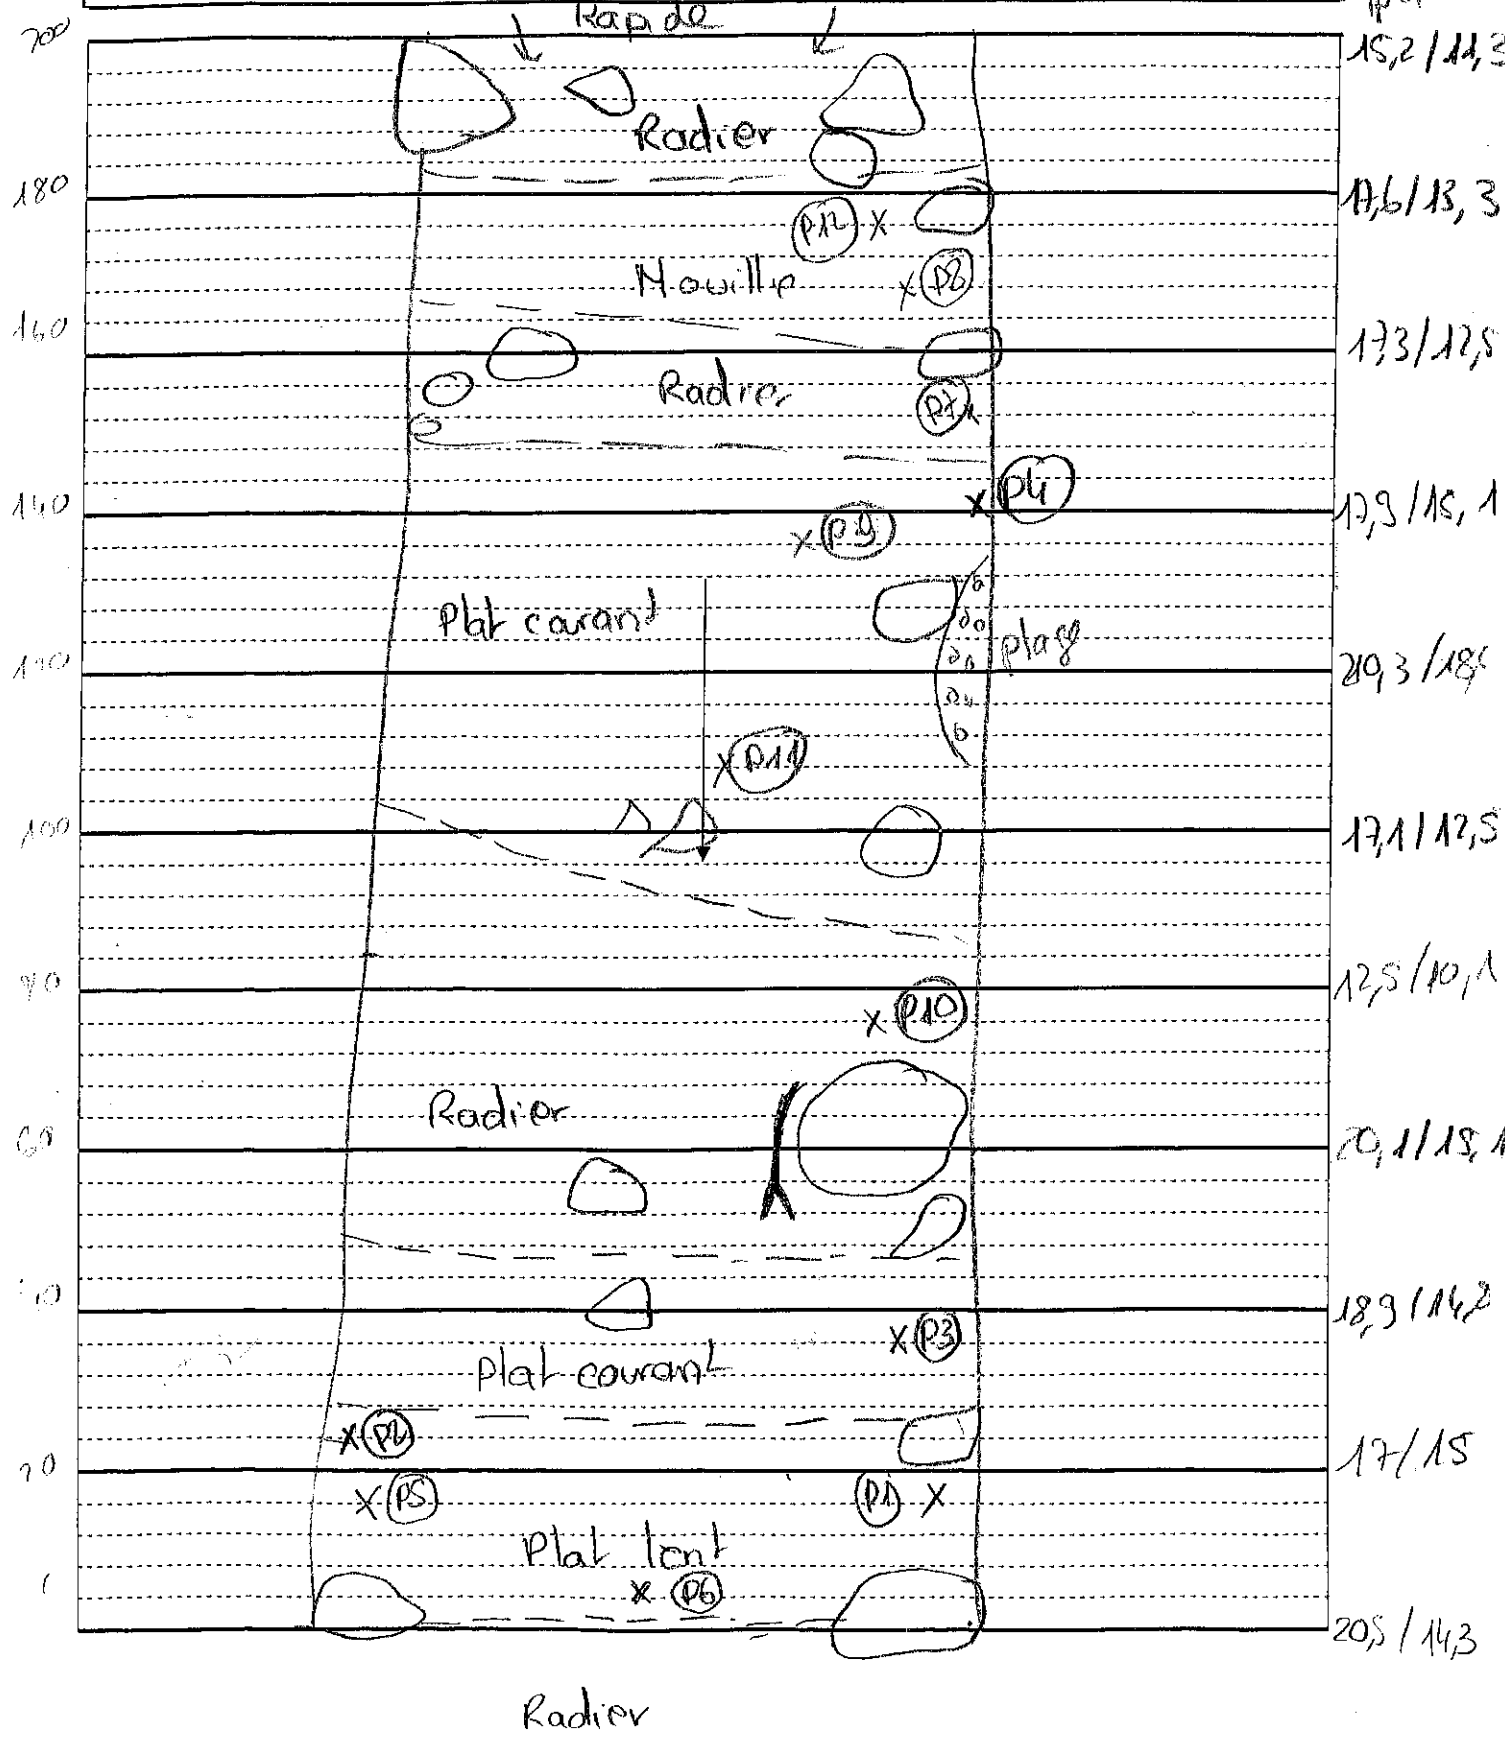 Rapide
200 15,2/11,3
Radier
180 17,6/13,3
P12 x
Mouille x P8
160 17,3/12,5
Radier P7 x
x P4
140 17,9/15,1
x P9
Plat courant
plage
120 20,3/18,
x P11
100 17,1/12,5
80 12,5/10,1
x P10
Radier
60 20,1/18,1
40 18,9/14,8
x P3
Plat courant
x P2
20 17/15
x P5 P1 x
Plat lent
x P6
20,5/14,3
Radier